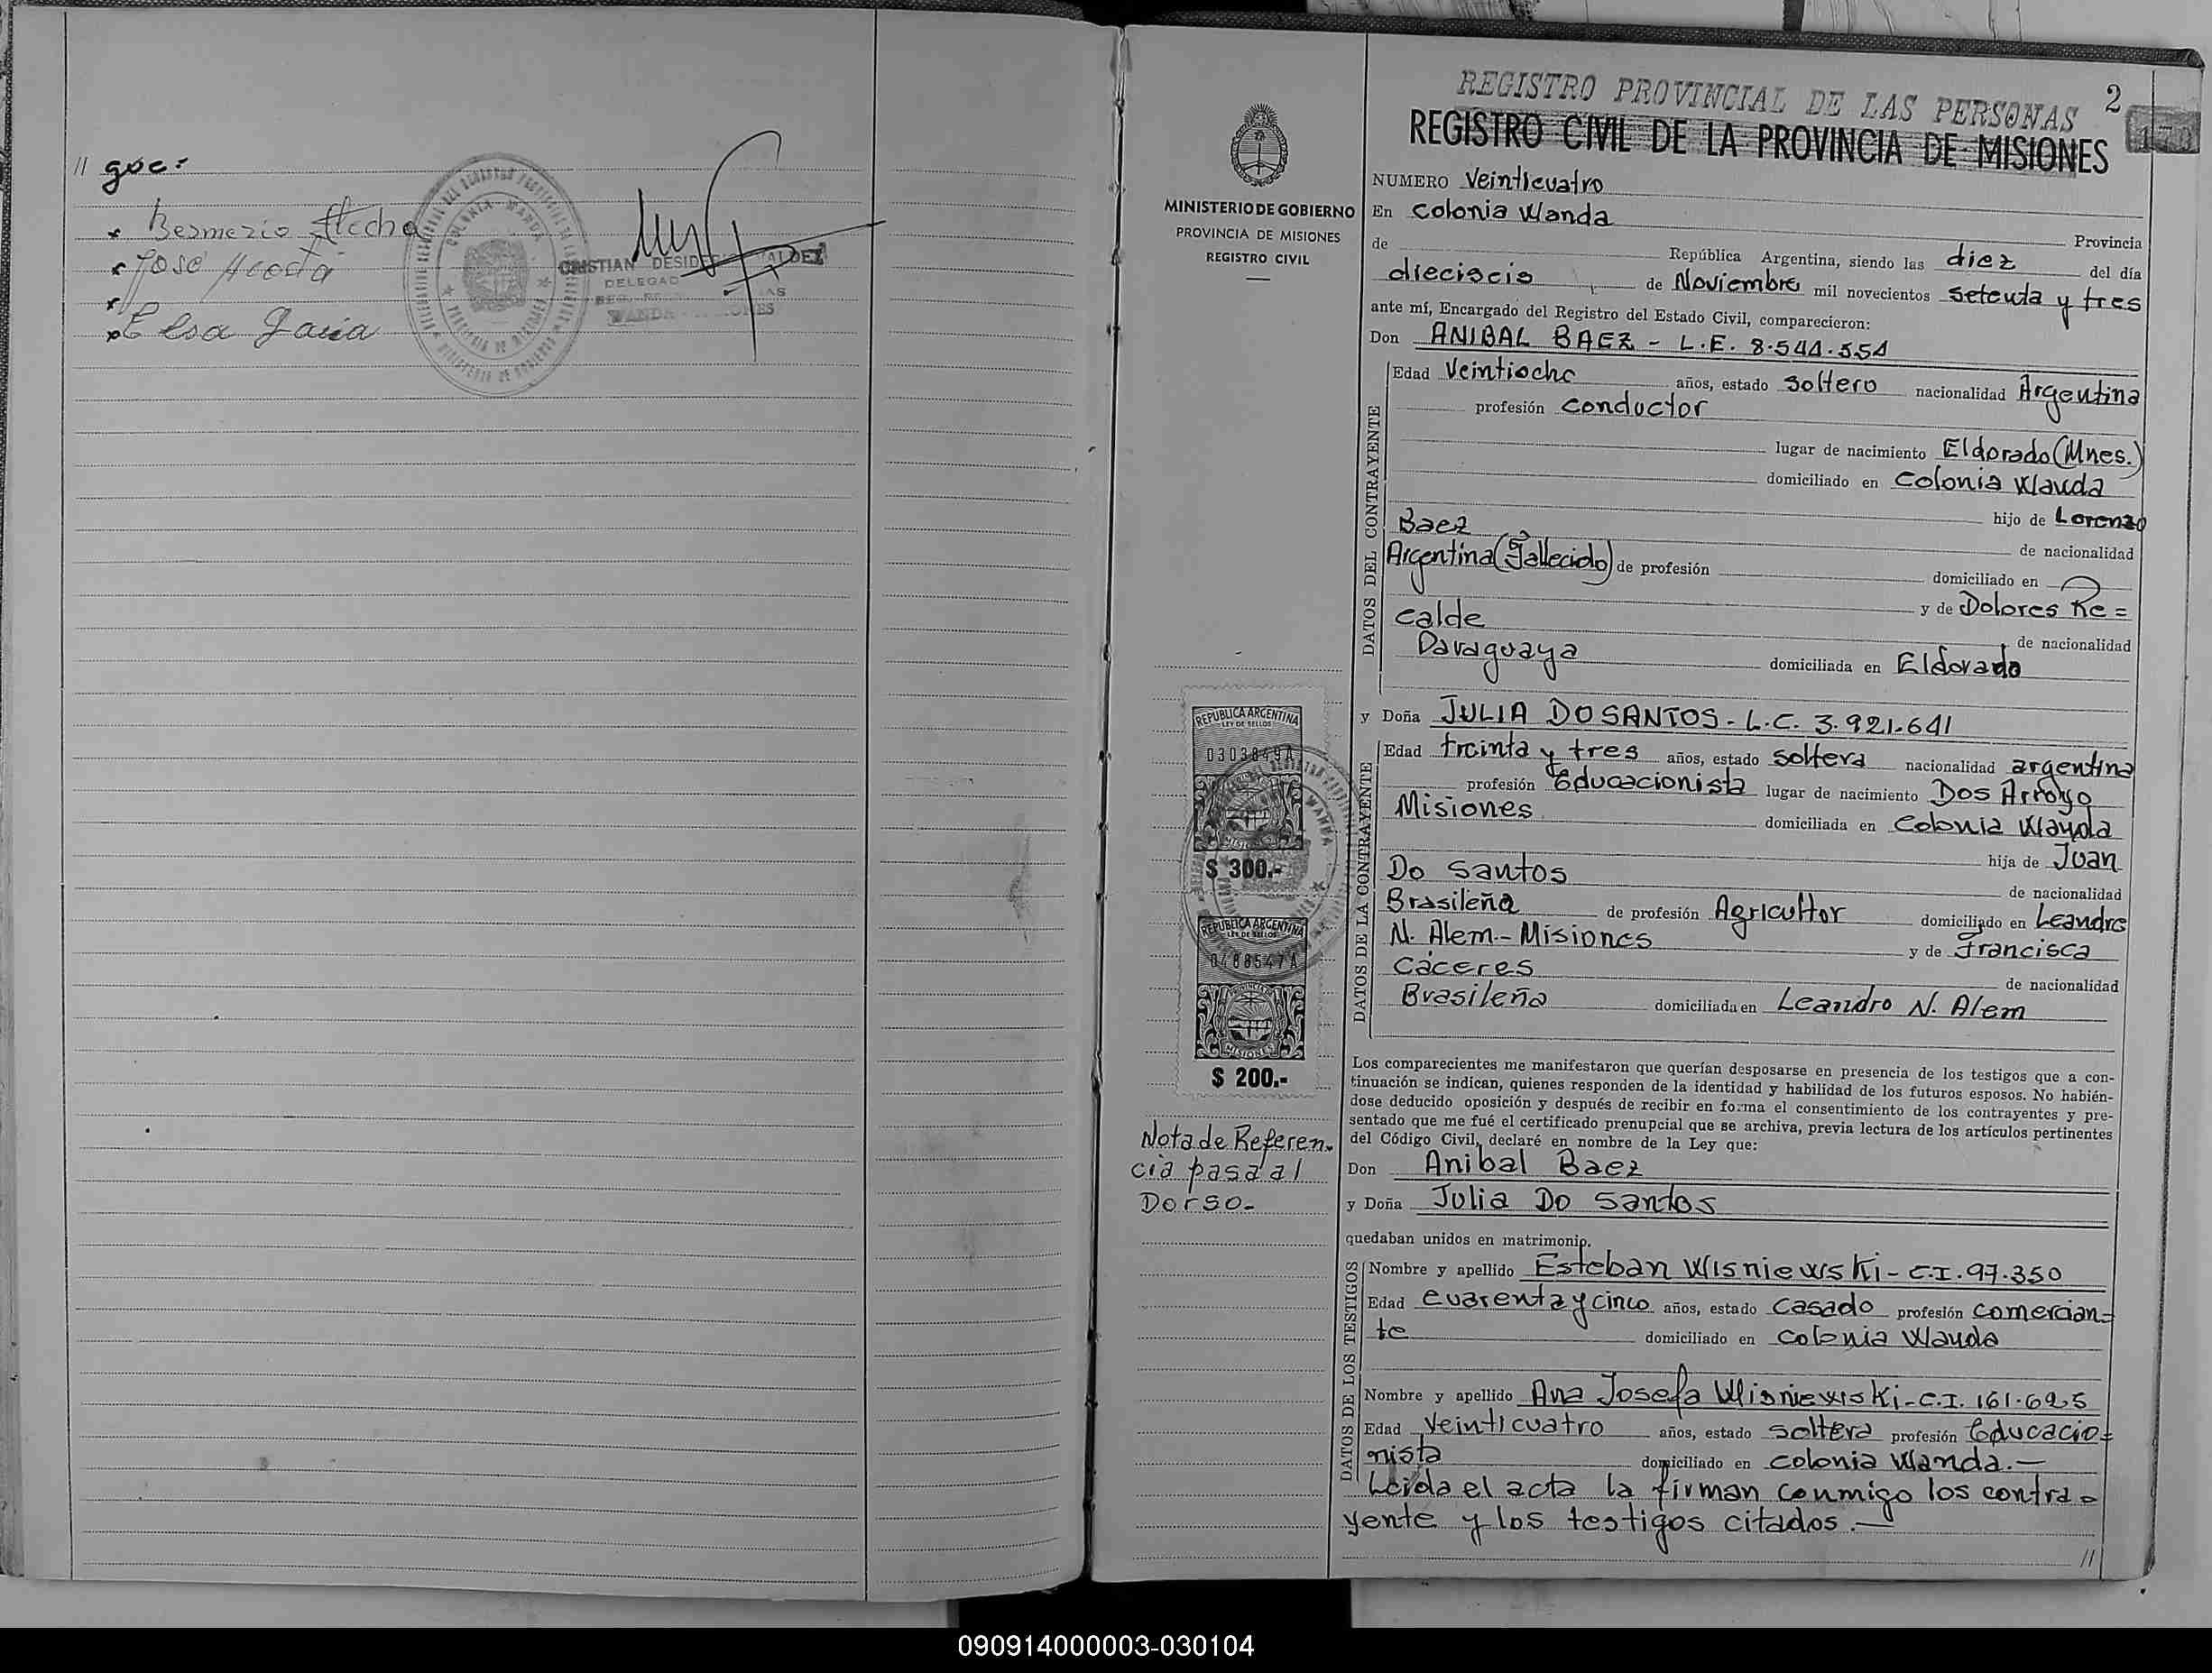 // goe:
Bermezio Flecha
José Acosta
Elsa
COLONIA WANDA
CRISTIAN DESID
DELEGAD
WANDA
REGISTRO PROVINCIAL DE LAS PERSONAS 2
173
REGISTRO CIVIL DE LA PROVINCIA DE MISIONES
MINISTERIO DE GOBIERNO
PROVINCIA DE MISIONES
REGISTRO CIVIL
NUMERO Veinticuatro
En Colonia Wanda
Provincia
de República Argentina, siendo las diez del día
dieciseis de Noviembre mil novecientos setenta y tres
ante mí, Encargado del Registro del Estado Civil, comparecieron:
Don ANIBAL BAEZ - L.E. 8.544.554
DATOS DEL CONTRAYENTE
Edad Veintiocho años, estado soltero nacionalidad Argentina
profesión conductor
lugar de nacimiento Eldorado (Mnes.)
domiciliado en Colonia Wanda
hijo de Lorenzo
Baez de nacionalidad
Argentina (Fallecido) de profesión domiciliado en
y de Dolores Re=
calde de nacionalidad
Paraguaya domiciliada en Eldorado
y Doña JULIA DO SANTOS - L.C. 3.921.641
DATOS DE LA CONTRAYENTE
Edad treinta y tres años, estado soltera nacionalidad argentina
profesión Educacionista lugar de nacimiento Dos Arroyo
Misiones domiciliada en Colonia Wanda
hija de Juan
Do Santos de nacionalidad
Brasileña de profesión Agricultor domiciliado en Leandro
N. Alem - Misiones y de Francisca
Cáceres de nacionalidad
Brasileña domiciliada en Leandro N. Alem
REPUBLICA ARGENTINA
LEY DE SELLOS
0303849A
MISIONES
$ 300.-
REPUBLICA ARGENTINA
LEY DE SELLOS
0488547A
MISIONES
$ 200.-
Los comparecientes me manifestaron que querían desposarse en presencia de los testigos que a con-
tinuación se indican, quienes responden de la identidad y habilidad de los futuros esposos. No habién-
dose deducido oposición y después de recibir en forma el consentimiento de los contrayentes y pre-
sentado que me fué el certificado prenupcial que se archiva, previa lectura de los artículos pertinentes
del Código Civil, declaré en nombre de la Ley que:
Nota de Referen-
cia pasa al
Dorso-
Don Anibal Baez
y Doña Julia Do Santos
quedaban unidos en matrimonio.
DATOS DE LOS TESTIGOS
Nombre y apellido Esteban Wisniewski - C.I. 97.350
Edad cuarenta y cinco años, estado casado profesión comercian=
te domiciliado en colonia Wanda
Nombre y apellido Ana Josefa Wisniewski - C.I. 161.625
Edad Veinticuatro años, estado soltera profesión Educacio=
nista domiciliado en colonia Wanda.-
Leida el acta la firman conmigo los contra=
yente y los testigos citados.-
//
090914000003-030104